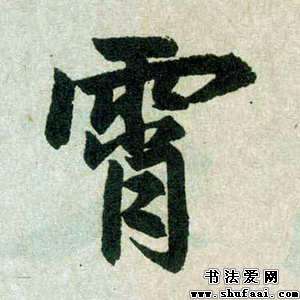 霄
书法爱网
www.shufaai.com